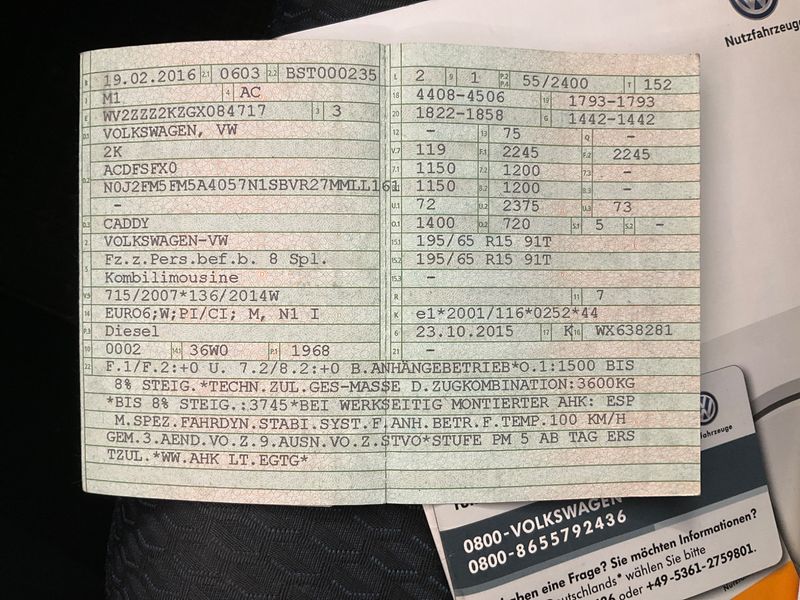 Nutzfahrzeuge
B 19.02.2016 2.1 0603 2.2 BST000235
J M1 4 AC
E WV2ZZZ2KZGX084717 3 3
D.1 VOLKSWAGEN, VW
2K
ACDFSFX0
D.2 N0J2FM5FM5A4057N1SBVR27MMLL161
-
D.3 CADDY
2 VOLKSWAGEN-VW
5 Fz.z.Pers.bef.b. 8 Spl.
Kombilimousine
V.9 715/2007*136/2014W
14 EURO6;W;PI/CI; M, N1 I
P.3 Diesel
10 0002 14.1 36W0 P.1 1968
L 2 9 1 P.2 P.4 55/2400 T 152
18 4408-4506 19 1793-1793
20 1822-1858 G 1442-1442
12 - 13 75 Q -
V.7 119 F.1 2245 F.2 2245
7.1 1150 7.2 1200 7.3 -
8.1 1150 8.2 1200 8.3 -
U.1 72 U.2 2375 U.3 73
O.1 1400 O.2 720 S.1 5 S.2 -
15.1 195/65 R15 91T
15.2 195/65 R15 91T
15.3 -
R 11 7
K e1*2001/116*0252*44
6 23.10.2015 17 K 16 WX638281
21 -
22 F.1/F.2:+0 U. 7.2/8.2:+0 B.ANHÄNGEBETRIEB*O.1:1500 BIS
8% STEIG.*TECHN.ZUL.GES-MASSE D.ZUGKOMBINATION:3600KG
*BIS 8% STEIG.:3745*BEI WERKSEITIG MONTIERTER AHK: ESP
M.SPEZ.FAHRDYN.STABI.SYST.F.ANH.BETR.F.TEMP.100 KM/H
GEM.3.AEND.VO.Z.9.AUSN.VO.Z.STVO*STUFE PM 5 AB TAG ERS
TZUL.*WW.AHK LT.EGTG*
0800-VOLKSWAGEN
0800-8655792436
haben eine Frage? Sie möchten Informationen?
Deutschlands* wählen Sie bitte
oder +49-5361-2759801.